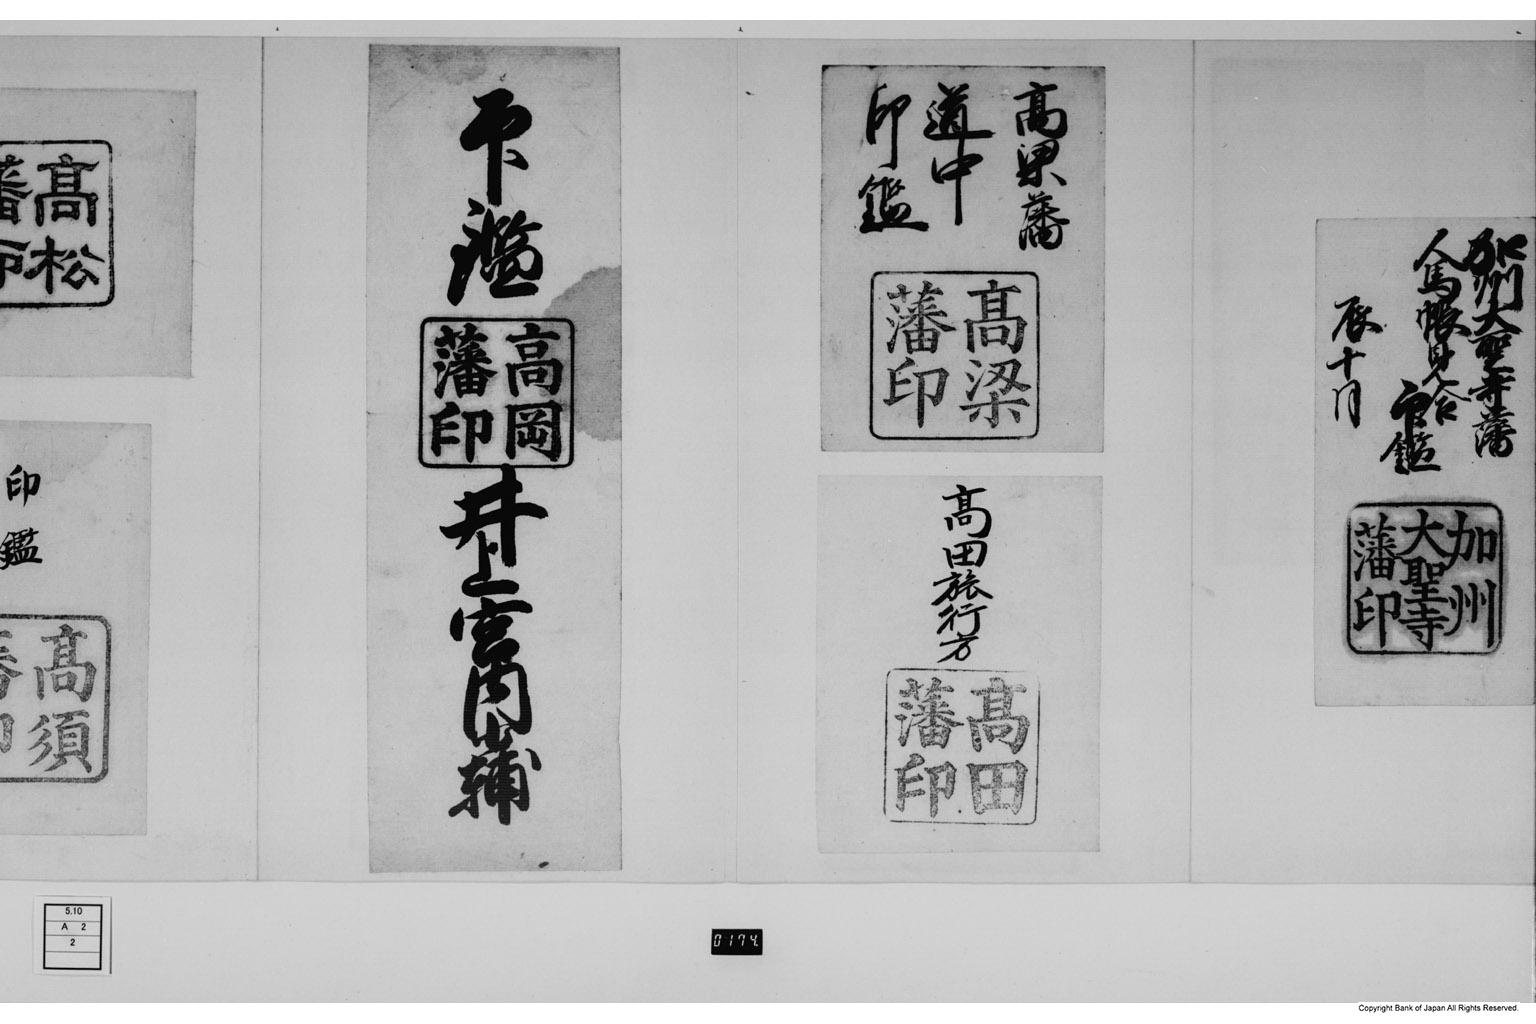 加州大聖寺藩
人馬帳見合
印鑑
辰十月
加州
大聖寺
藩印
高梁藩
道中
印鑑
高梁
藩印
高田旅行方
高田
藩印
印鑑
高岡
藩印
井上宮内少輔
高松
藩印
印鑑
高須
藩印
5.10
A 2
2
0174.
Copyright Bank of Japan All Rights Reserved.